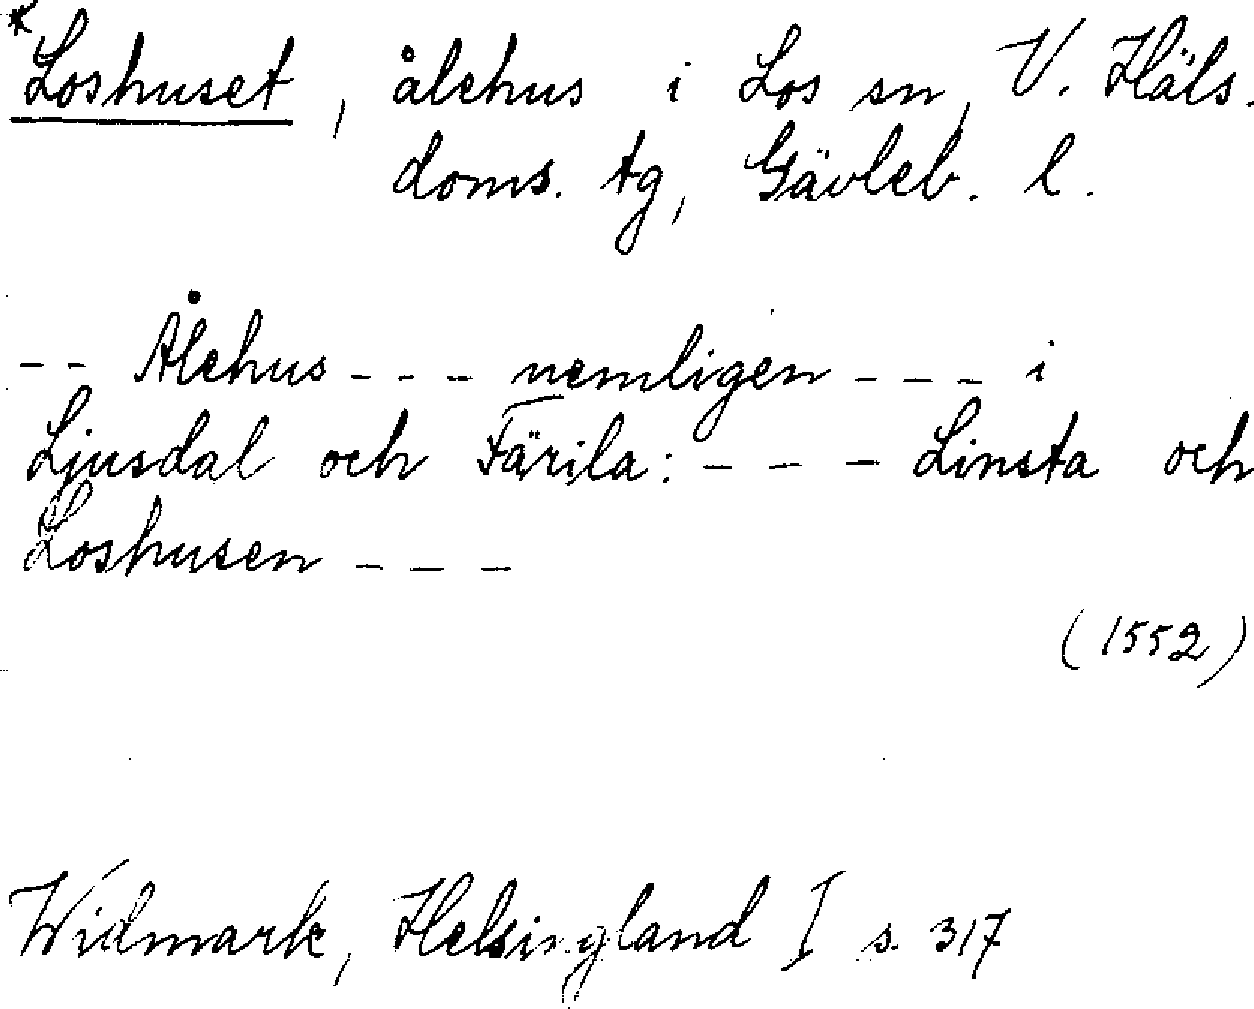 *Loshuset, ålehus i Los sn, V. Häls.
doms. tg, Gävleb. l.
-- Ålehus --- nemligen --- i
Ljusdal och Färila: --- Linsta och
Loshusen ---
(1552)
Widmark, Helsingland I s. 317